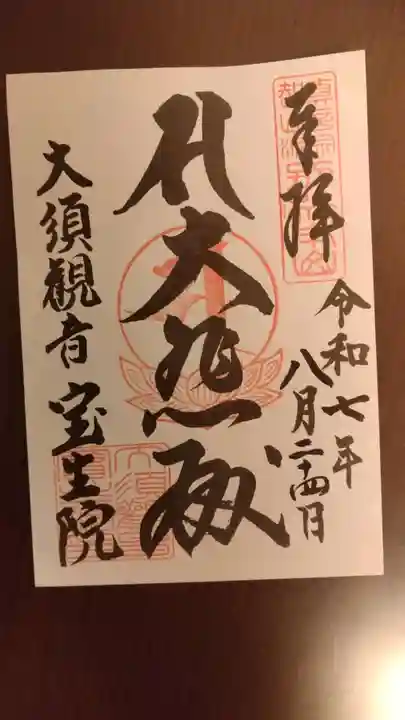 奉拝
令和七年
八月二十四日
大悲殿
大須観音 宝生院